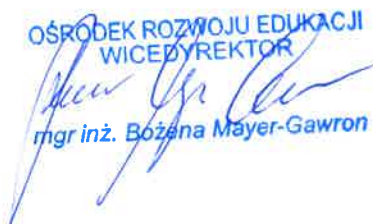 OŚRODEK ROZWOJU EDUKACJI
WICEDYREKTOR
mgr inż. Bożena Mayer-Gawron